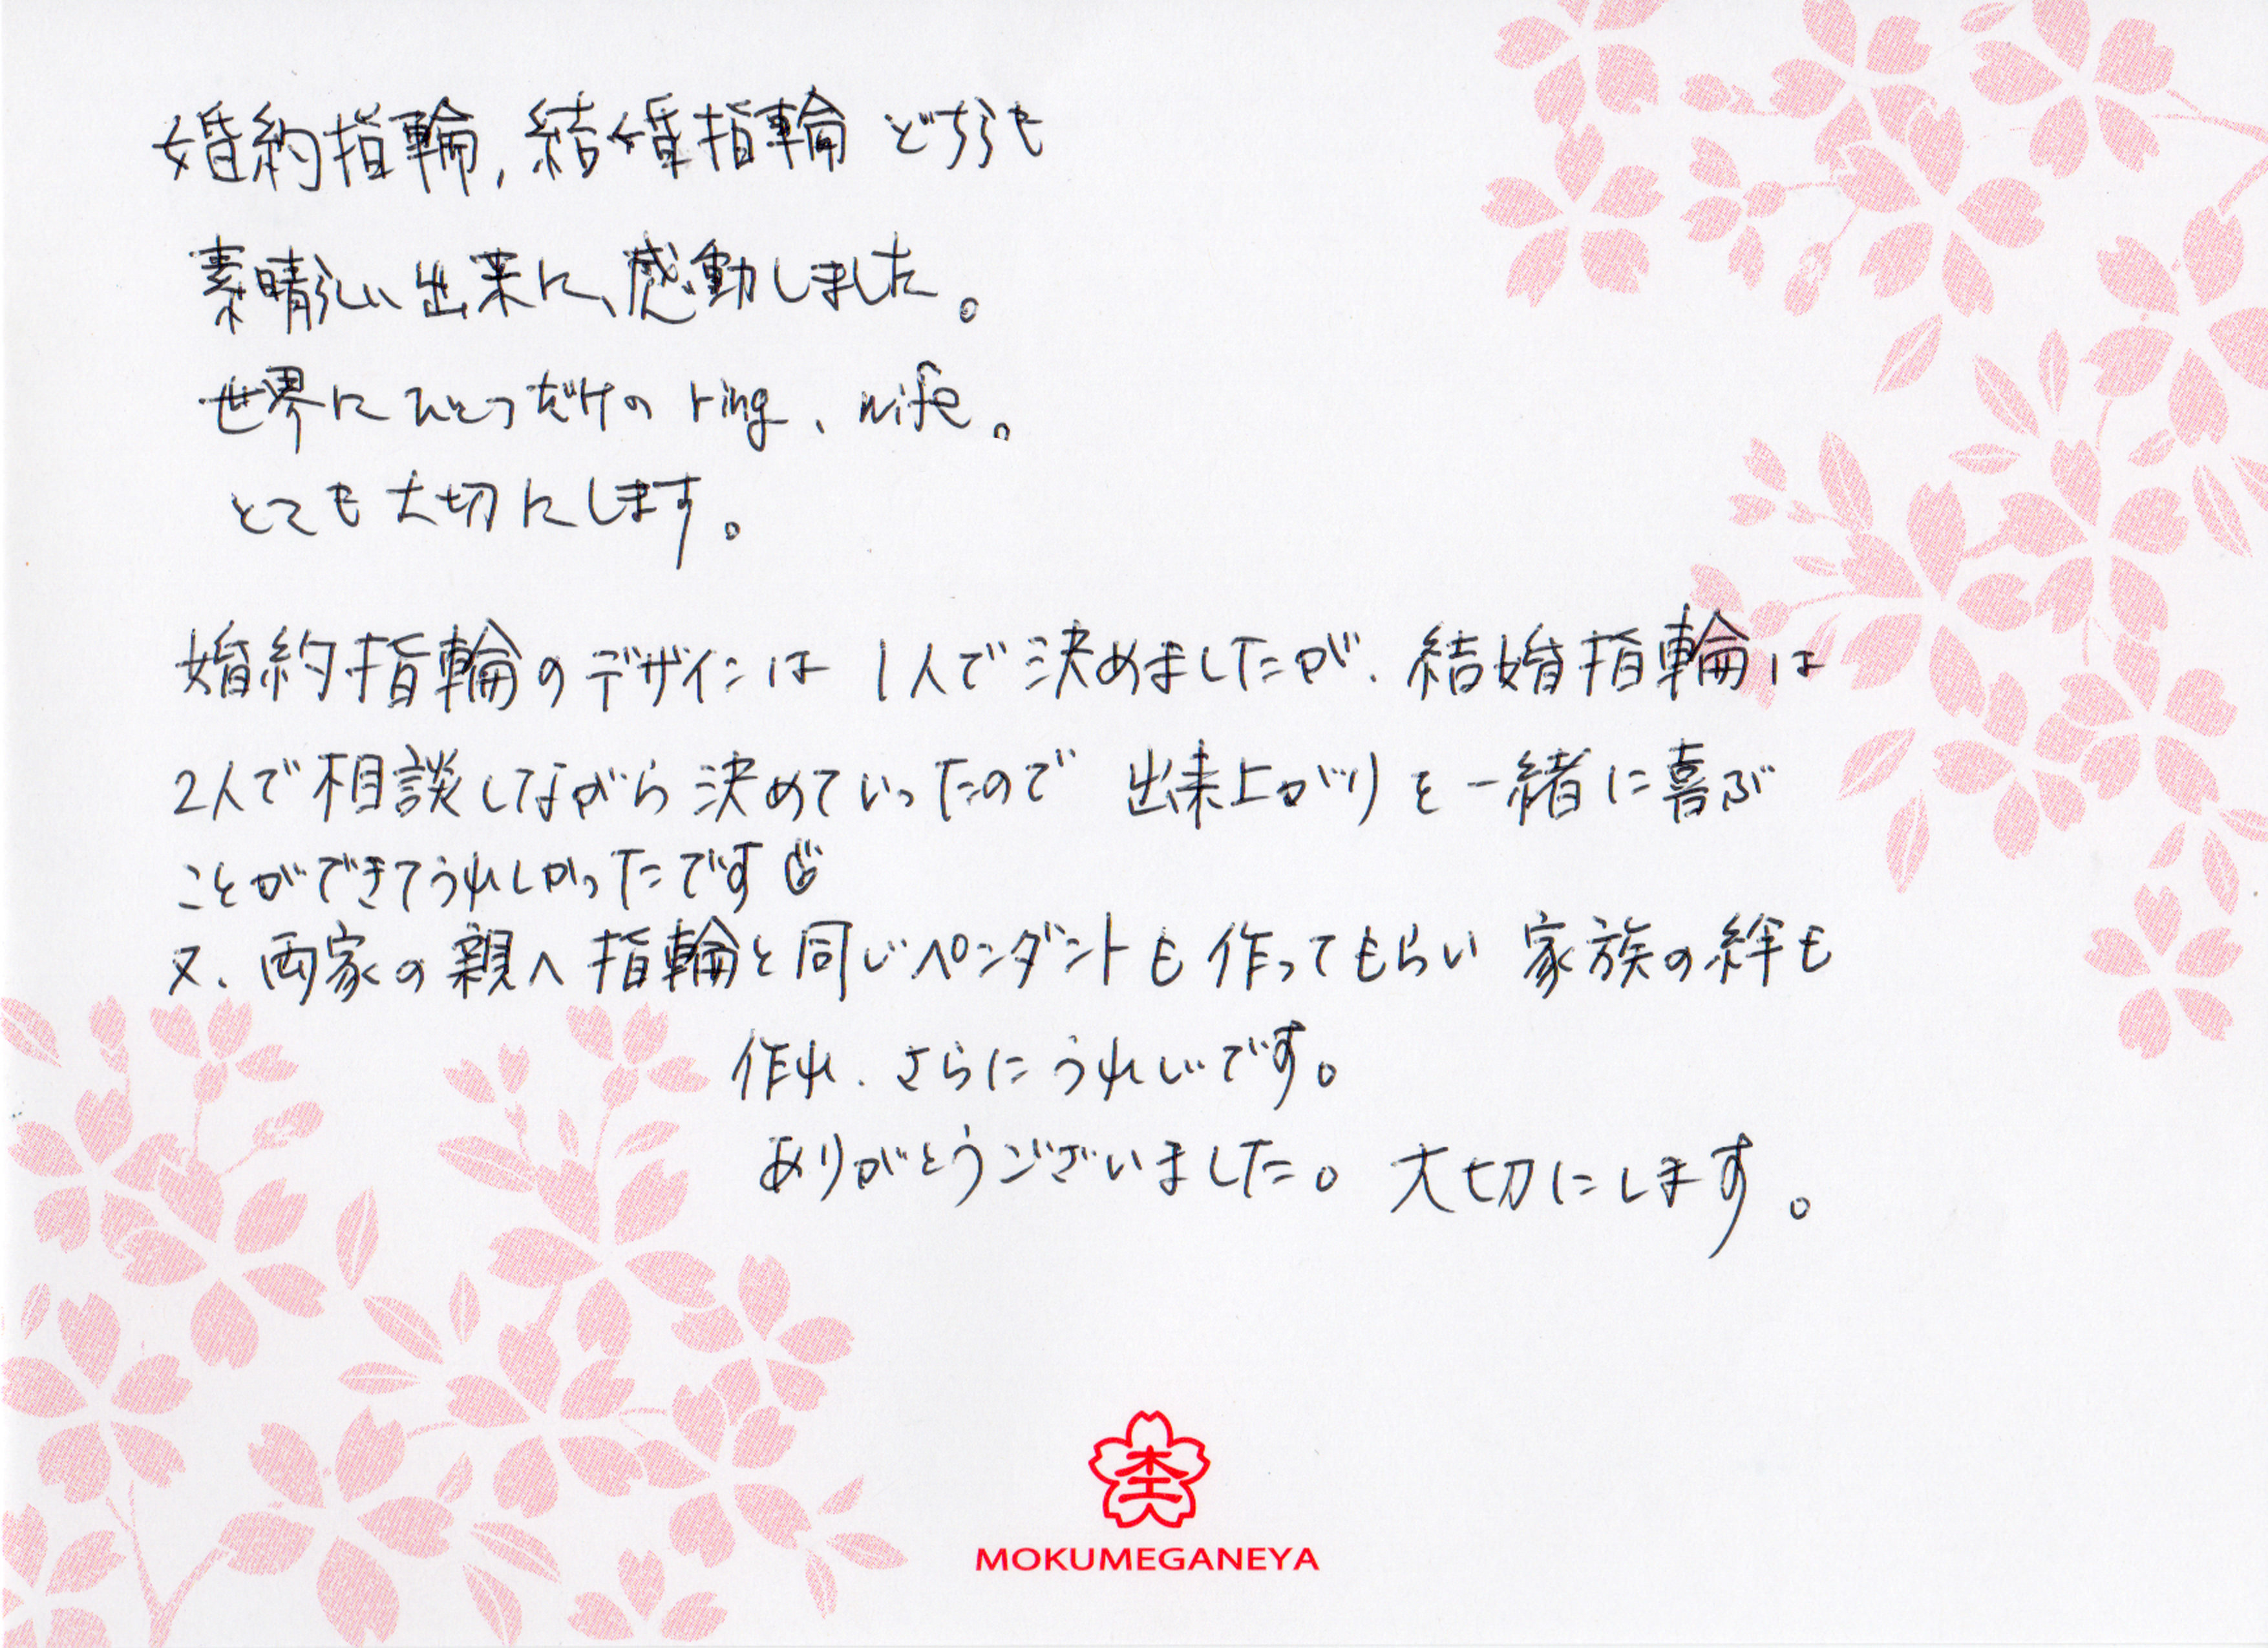 婚約指輪,結婚指輪 どちらも
素晴らしい出来に、感動しました。
世界にひとつだけの ring、wife。
とても大切にします。
婚約指輪のデザインは 1人で決めましたが、結婚指輪は
2人で相談しながら決めていったので 出来上がりを一緒に喜ぶ
ことができてうれしかったです
又、両家の親へ指輪と同じペンダントも作ってもらい 家族の絆も
作れ、さらにうれしいです。
ありがとうございました。大切にします。
杢
MOKUMEGANEYA